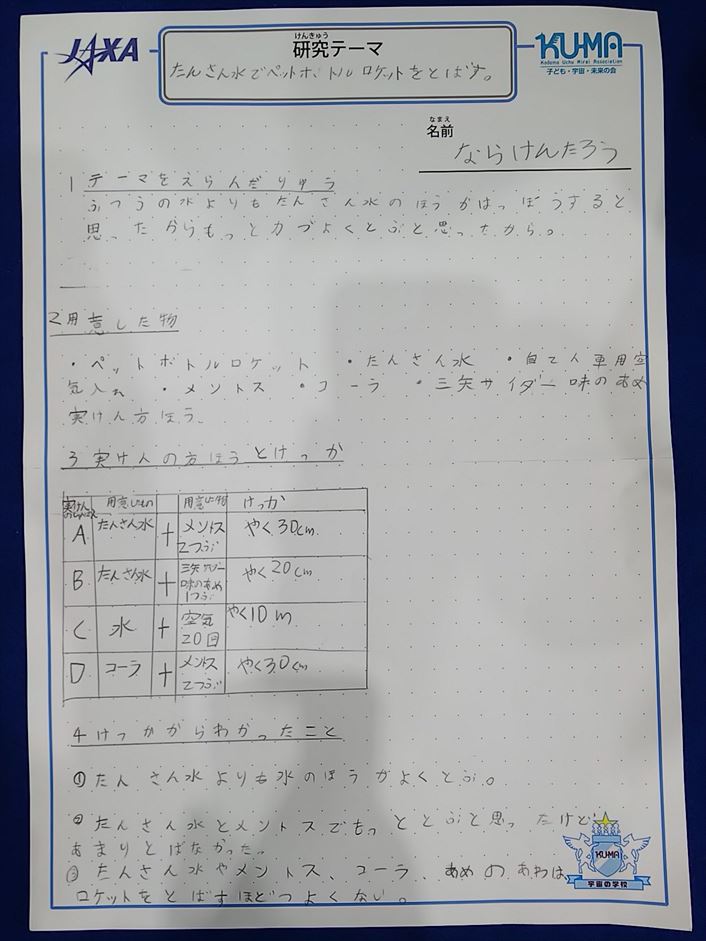 JAXA
けんきゅう
研究テーマ
たんさん水でペットボトルロケットをとばす。
KU-MA
Kodomo Uchu Mirai Association
子ども・宇宙・未来の会
なまえ
名前
ならけんたろう
1 テーマをえらんだりゆう
ふつうの水よりもたんさん水のほうがはっぽうすると
思ったからもっと力づよくとぶと思ったから。
2用意した物
・ペットボトルロケット ・たんさん水 ・自てん車用空
気入れ ・メントス ・コーラ ・三矢サイダー味のあめ
実けん方ほう
3 実けんの方ほうとけっか
用意したもの 用意した物 けっか
A たんさん水 + メントス2つぶ やく30cm
B たんさん水 + 三矢サイダー味のあめ1つぶ やく20cm
C 水 + 空気20回 やく10m
D コーラ + メントス2つぶ やく30cm
4けっかからわかったこと
①たんさん水よりも水のほうがよくとぶ。
②たんさん水とメントスでもっととぶと思ったけど
あまりとばなかった。
③たんさん水やメントス、コーラ、あめのあわは、
ロケットをとばすほどつよくない。
KUMA
宇宙の学校